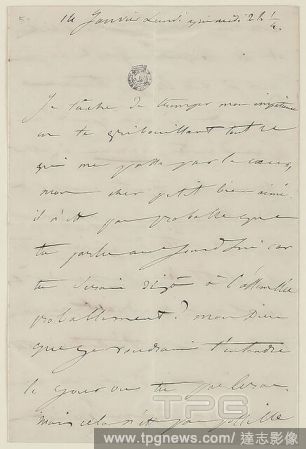 14 Janvier Lundi après midi 2h ¼.
Je tâche de tromper mon impatience
en te gribouillant tout ce
qui me passe par le cœur,
mon cher petit bien aimé
il n'est pas probable que
tu parles aujourd'hui car
tu serais déjà à l'assemblée
probablement? mon Dieu
que je voudrais t'entendre
le jour où tu parleras
mais cela n'est pas possible
TPG
www.tpgnews.com/ 達志影像